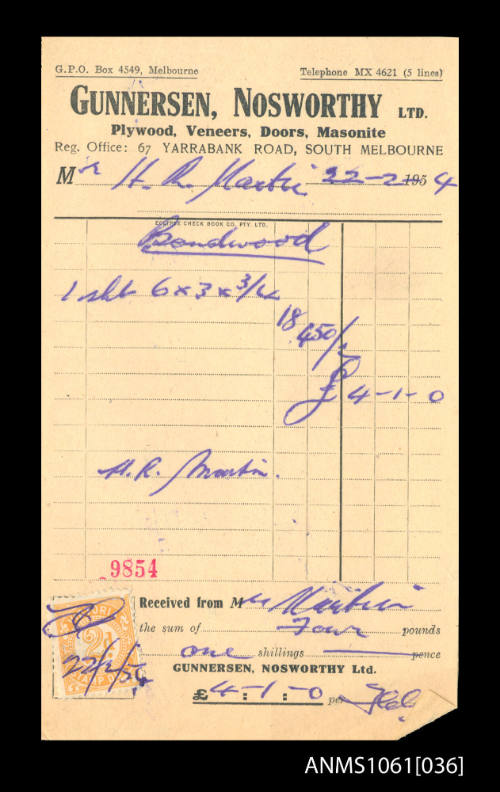 G.P.O. Box 4549, Melbourne Telephone MX 4621 (5 lines)
GUNNERSEN, NOSWORTHY LTD.
Plywood, Veneers, Doors, Masonite
Reg. Office: 67 YARRABANK ROAD, SOUTH MELBOURNE
Mr H. R. Martin 22-2-1954
ECLIPSE CHECK BOOK CO. PTY. LTD.
Bondwood
1 sht 6 x 3 x 3/16
18 450/-
£ 4-1-0
H. R. Martin.
9854
Received from Mr Martin
the sum of Four pounds
one shillings pence
GUNNERSEN, NOSWORTHY Ltd.
£4-1-0 per
22/2/54
ANMS1061[036]